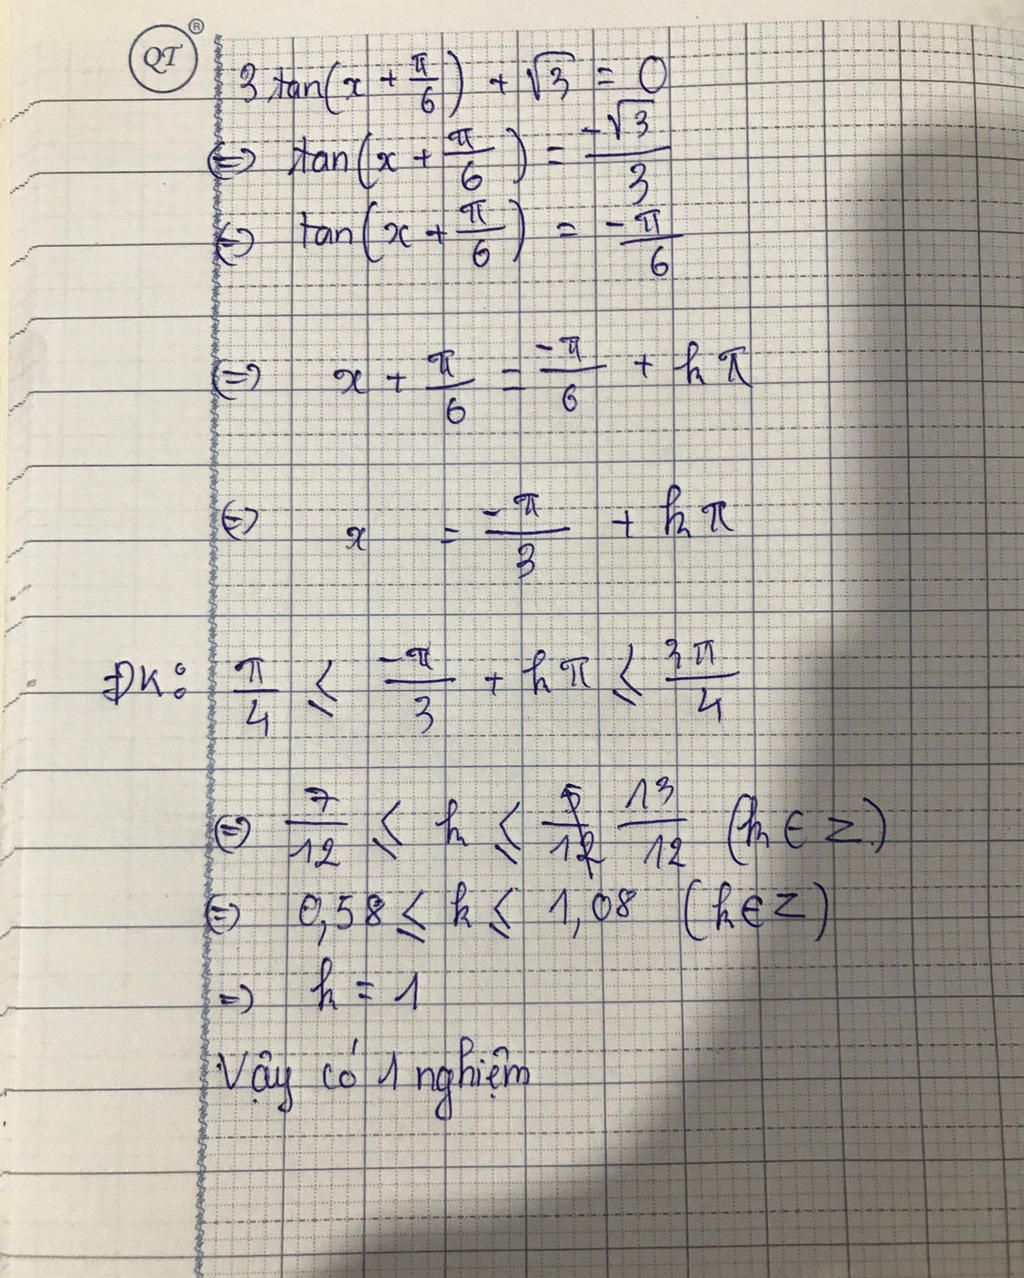 QT ®
3 tan(x + π/6) + √3 = 0
⇔ tan(x + π/6) = -√3/3
⇔ tan(x + π/6) = -π/6
⇔ x + π/6 = -π/6 + kπ
⇔ x = -π/3 + kπ
ĐK: π/4 ≤ -π/3 + kπ ≤ 3π/4
⇔ 7/12 ≤ k ≤ 13/12 (k ∈ Z)
⇔ 0,58 ≤ k ≤ 1,08 (k ∈ Z)
⇒ k = 1
Vậy có 1 nghiệm